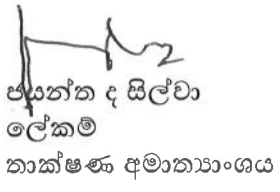 ජයන්ත ද සිල්වා
ලේකම්
තාක්ෂණ අමාත්‍යාංශය